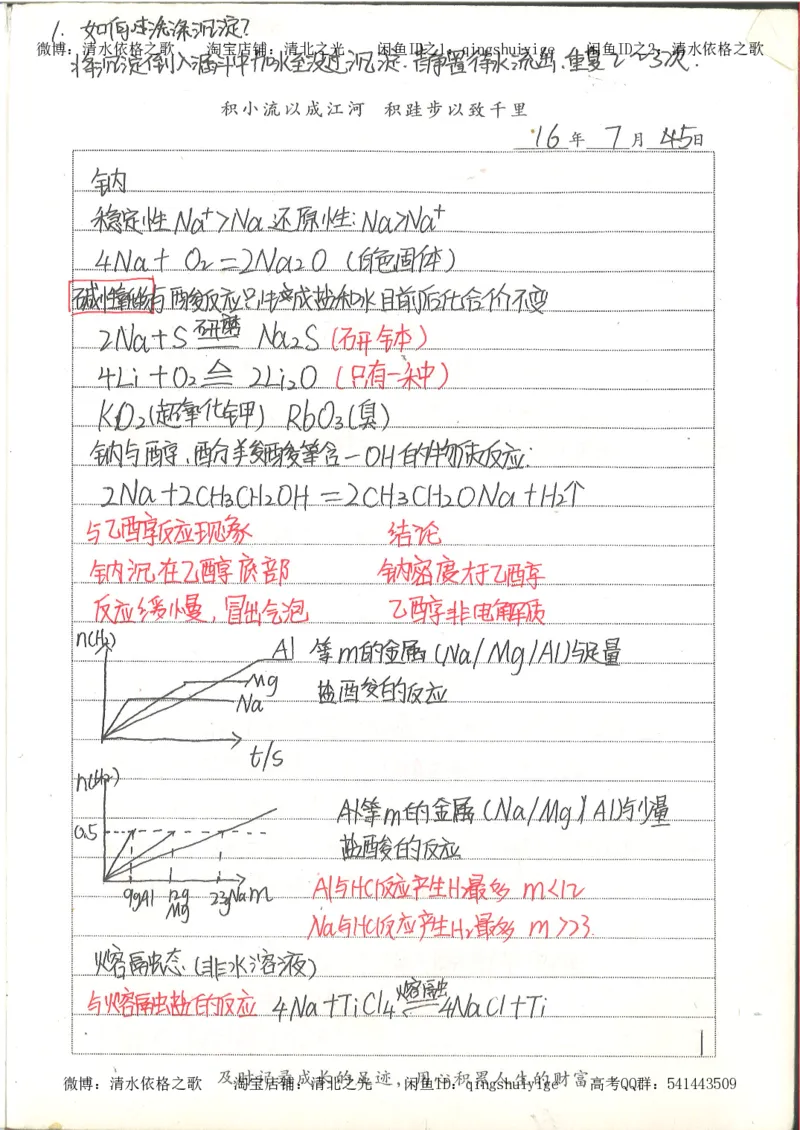 1. 如何洗涤沉淀?
微博：清水依格之歌 淘宝店铺：清北之光 闲鱼ID之1：qingshuiyige 闲鱼ID之2：清水依格之歌
将沉淀倒入漏斗中加水至浸过沉淀.静置待水流出.重复2~3次.
积小流以成江河 积跬步以致千里
16年 7月 45日
钠
稳定性 Na⁺>Na 还原性：Na>Na⁺
4Na + O₂ = 2Na₂O (白色固体)
碱性氧化物与酸反应只生成盐和水且前后化合价不变
2Na+S 研磨 Na₂S (研钵)
4Li +O₂ △ 2Li₂O (只有一种)
KO₂(超氧化钾) RbO₃(臭)
钠与醇、酚、羧酸等含-OH的物质反应:
2Na+2CH₃CH₂OH=2CH₃CH₂ONa+H₂↑
与乙醇反应现象 结论
钠沉在乙醇底部 钠密度大于乙醇
反应缓慢，冒出气泡 乙醇非电解质
n(H₂)
Al 等m的金属 (Na/Mg/Al)与足量
Mg 盐酸的反应
Na
t/s
n(H₂)
Al等m的金属 (Na/Mg/Al)与少量
0.5 盐酸的反应
9gAl 12g Mg 23gNa m
Al与HCl反应产生H₂最多 m<12
Na与HCl反应产生H₂最多 m>23.
熔融态 (非水溶液)
与熔融盐的反应 4Na+TiCl₄ 熔融 4NaCl+Ti
1
及时记录成长的足迹，用心积累人生的财富
微博：清水依格之歌 淘宝店铺：清北之光 闲鱼ID：qingshuiyige 高考QQ群：541443509